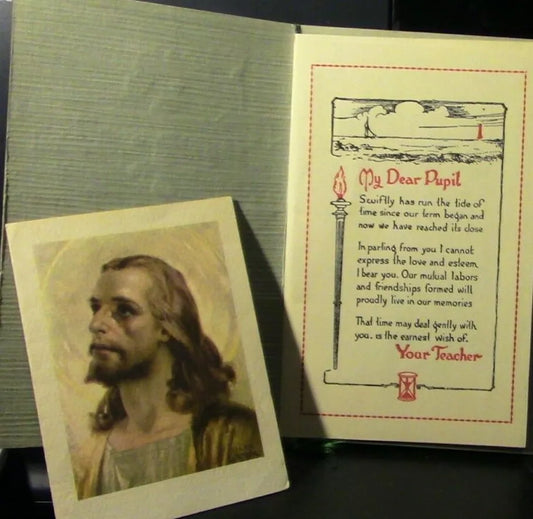 My Dear Pupil
Swiftly has run the tide of
time since our term began and
now we have reached its close
In parting from you I cannot
express the love and esteem
I bear you. Our mutual labors
and friendships formed will
proudly live in our memories
That time may deal gently with
you, is the earnest wish of.
Your Teacher